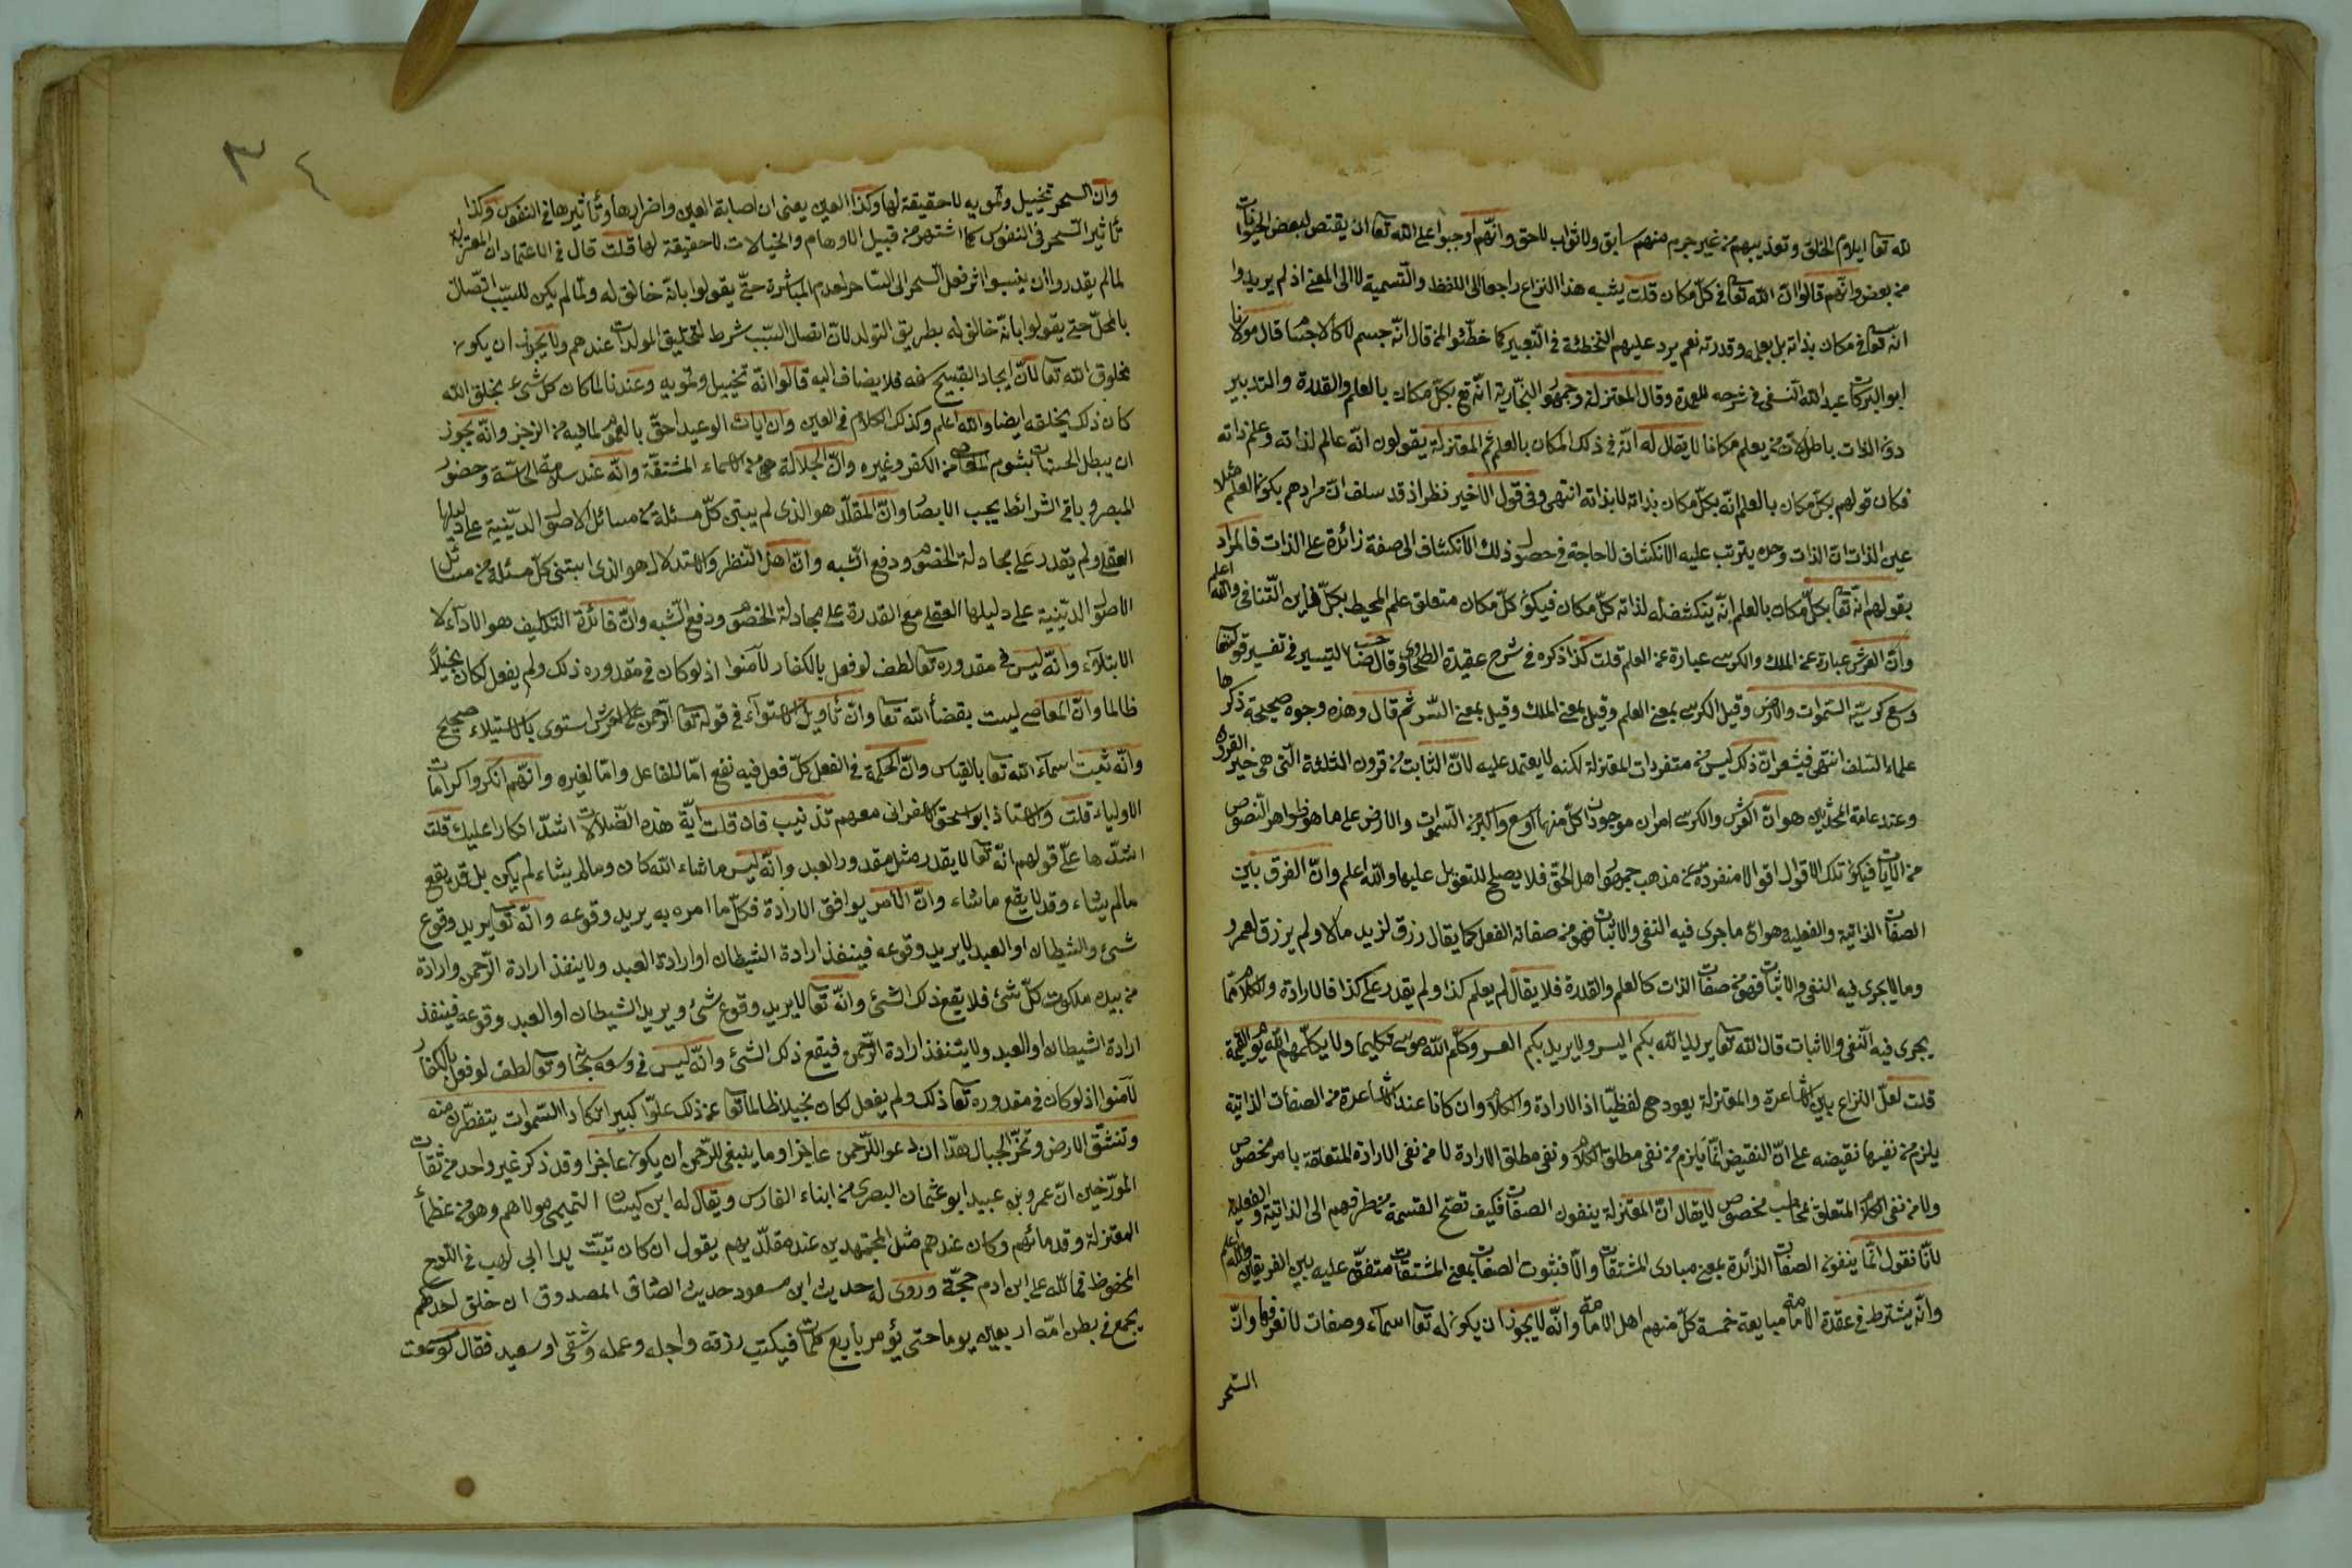 لله تعا ايلام الخلق وتعذيبهم من غير جرم منهم سابق ولا ثواب لاحق وانهم اوجبوا على الله تعا ان يقتص لبعض الحيوانات
من بعض وانهم قالوا ان الله تعا في كل مكان قلت يشبه هذا النزاع راجعا الى اللفظ والتسمية لا الى المعنى اذ لم يريدوا
انه تعا في مكان بذاته بل بعلمه وقدرته نعم يرد عليهم التخطئة في التعبير كما خطئوا من قال انه جسم لا كالاجسام قال مولانا
ابو البركات عبد الله النسفي في شرحه للعمدة وقال المعتزلة وجمهور النجارية انه تع بكل مكان بالعلم والقدرة والتدبير
دون الذات باطل لان من يعلم مكانا لا يقال له انه في ذلك المكان بالعلم ثم المعتزلة يقولون انه عالم لذاته وعلمه ذاته
فكان قولهم بكل مكان بالعلم انه بكل مكان بذاته لا بذاته انتهى وفي قول الاخير نظر اذ قد سلف ان مرادهم بكون العلم مثلا
عين الذات ان الذات وحده يترتب عليه الانكشاف لا حاجة في حصول ذلك الانكشاف الى صفة زائدة على الذات فالمراد
بقولهم انه تعا بكل مكان بالعلم انه ينكشف له لذاته كل مكان فيكون كل مكان متعلق علم المحيط بكل فاين التنافي والله اعلم
وان العرش عبارة عن الملك والكرسي عبارة عن العلم قلت كذا ذكره في شرح عقيدة الطحاوي وقال صاحب التيسير في تفسير قوله تعا
وسع كرسيه السموات والارض وقيل الكرسي بمعنى العلم وقيل بمعنى الملك وقيل بمعنى السر ثم قال وهذه وجوه صحيحة ذكرها
علماء السلف انتهى فيشعر ان ذلك ليس من متفردات المعتزلة لكنه لا يعتمد عليه لان الثابت من قرون الثلثة التي هي خير القرون
وعند عامة المحدثين هو ان العرش والكرسي امران موجودان كل منهما اوسع واكبر من السموات والارض على ما هو ظواهر النصوص
من الآيات فيكون تلك الاقوال اقوالا منفردة عن مذهب جمهور اهل الحق فلا يصلح للتعويل عليها والله اعلم وان الفرق بين
الصفات الذاتية والفعلية هو ان ما جرى فيه النفي والاثبات فهو من صفات الفعل كما يقال رزق لزيد مالا ولم يرزق لعمرو
وما لا يجري فيه النفي والاثبات فهو من صفات الذات كالعلم والقدرة فلا يقال لم يعلم كذا ولم يقدر على كذا فالارادة والكلام مما
يجري فيه النفي والاثبات قال الله تعا يريد الله بكم اليسر ولا يريد بكم العسر وكلم الله موسى تكليما ولا يكلمهم الله يوم القيمة
قلت لعل النزاع بين الاشاعرة والمعتزلة يعود ح لفظيا اذ الارادة والكلام وان كانا عند الاشاعرة من الصفات الذاتية
يلزم من نفيها نقيضه على ان النقيض انما يلزم من نفي مطلق الكلام ونفي مطلق الارادة لا من نفي الارادة المتعلقة بامر مخصوص
ولا من نفي الكلام المتعلق بمخاطب مخصوص لا يقال ان المعتزلة ينفون الصفات فكيف تصح القسمة من طرفهم الى الذاتية والفعلية
لانا نقول انما ينفون الصفات الزائدة بمعنى مبادي المشتقات والا فثبوت الصفات بمعنى المشتقات متفق عليه بين الفريقين والله اعلم
وانه يشترط في عقدة الامامة مبايعة خمسة كل منهم اهل الامامة وانه لا يجوز ان يكون له تعا اسماء وصفات لا نعرفها وان
السحر
٣٤
وان السحر تخييل وتمويه لا حقيقة لها وكذا العين يعنى ان اصابة العين واضرارها وتأثيرها في النفوس وكذا
تأثير السحر في النفوس كما اشتهر من قبيل الاوهام والخيالات لا حقيقة لها قلت قال في الاعتماد ان المعتزلة
لما لم يقدروا ان ينسبوا اثر فعل السحر الى الساحر لعدم المباشرة حتى يقولوا بانه خالق له ولما لم يكن للسبب اتصال
بالمحل حتى يقولوا بانه خالق له بطريق التولد لان اتصال السبب شرط لتخليق المولدات عندهم ولا يجوز ان يكون
مخلوق الله تعا لان ايجاد القبيح سفه فلا يضاف اليه قالوا انه تخييل وتمويه وعندنا لما كان كل شيء بخلق الله
كان ذلك بخلقه ايضا والله اعلم وكذلك الكلام في العين وان ايات الوعيد احق بالعموم لما فيه من الزجر وانه يجوز
ان يبطل الحسنات بشوم المعاصي من الكفر وغيره وان الجلالة هي من الاسماء المشتقة وانه عند سلامة الحاسة وحضور
المبصر وباقي الشرائط يجب الابصار وان المقلد هو الذي لم يبتن كل مسئلة من مسائل الاصول الدينية على دليلها
العقلي ولم يقدر على مجادلة الخصوم ودفع الشبه وان اهل النظر والاستدلال هو الذي ابتنى كل مسئلة من مسائل
الاصول الدينية على دليلها العقلي مع القدرة على مجادلة الخصوم ودفع الشبه وان فائدة التكليف هو الاداء لا
الابتلاء وانه ليس في مقدوره تعا لطف لو فعل بالكفار لآمنوا اذ لو كان في مقدوره ذلك ولم يفعل لكان بخيلا
ظالما وان المعاصي ليست بقضاء الله تعا وان تأويل الاستواء في قوله تعا الرحمن على العرش استوى بالاستيلاء صحيح
وانه تثبت اسماء الله تعا بالقياس وان الحكمة في الفعل كل فعل فيه نفع اما للفاعل واما لغيره وانهم انكروا كرامات
الاولياء قلت والاستاذ ابو اسحق الاسفرائي معهم تذنيب فان قلت اية هذه الضلالات اشد انكارا عليك قلت
اشدها علي قولهم انه تعا لا يقدر مثل مقدور العبد وانه ليس ما شاء الله كان وما لم يشاء لم يكن بل قد يقع
ما لم يشاء وقد لا يقع ما شاء وان الامر يوافق الارادة فكل ما امره به يريد وقوعه وانه تعا يريد وقوع
شئ والشيطان او العبد لا يريد وقوعه فينفذ ارادة الشيطان او ارادة العبد ولا ينفذ ارادة الرحمن وارادة
من بيده ملكوت كل شئ فلا يقع ذلك الشئ وانه تعا لا يريد وقوع شئ ويريد الشيطان او العبد وقوعه فينفذ
ارادة الشيطان او العبد ولا يتنفذ ارادة الرحمن فيقع ذلك الشئ وانه ليس في وسعه سبحانه وتعا لطف لو فعل بالكفار
لآمنوا اذ لو كان في مقدوره تعا ذلك ولم يفعل لكان بخيلا ظالما تعا عن ذلك علوا كبيرا تكاد السموات يتفطرن منه
وتنشق الارض وتخر الجبال هدا ان دعوا للرحمن عاجزا وما ينبغي للرحمن ان يكون عاجزا وقد ذكر غير واحد من ثقات
المورخين ان عمرو بن عبيد ابو عثمان البصري من ابناء الفارس ويقال له ابن كيسان التميمي مولاهم وهو من عظماء
المعتزلة وقدمائهم وكان عندهم مثل المجتهدين عند مقلديهم يقول ان كان تبت يدا ابي لهب في اللوح
المحفوظ فما لله على ابن ادم حجة وروى له حديث ابن مسعود حديث الصادق المصدوق ان خلق احدكم
يجمع في بطن امه اربعين يوما حتى يؤمر باربع كلمات فيكتب رزقه واجله وعمله وشقي او سعيد فقال لو سمعت